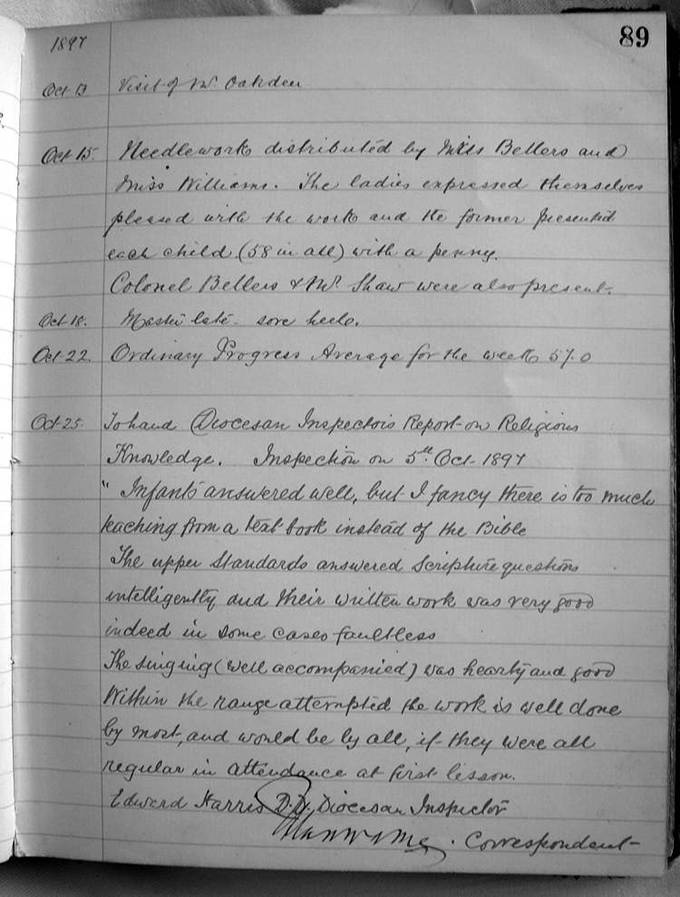 89
1897
Oct 13 Visit of Mr. Oakden
Oct 15. Needlework distributed by Miss Bellers and
Miss Williams. The ladies expressed themselves
pleased with the work and the former presented
each child (58 in all) with a penny.
Colonel Bellers & Mr Shaw were also present.
Oct 18. Master late - sore heel.
Oct 22. Ordinary Progress Average for the week 57.0
Oct 25. To hand Diocesan Inspectors Report on Religious
Knowledge. Inspection on 5th Oct 1897
" Infants answered well, but I fancy there is too much
teaching from a text book instead of the Bible
The upper Standards answered Scripture questions
intelligently and their written work was very good
indeed in some cases faultless
The singing (well accompanied) was hearty and good
Within the range attempted the work is well done
by most, and would be by all, if they were all
regular in attendance at first lesson.
Edward Harris D.D. Diocesan Inspector
Correspondent